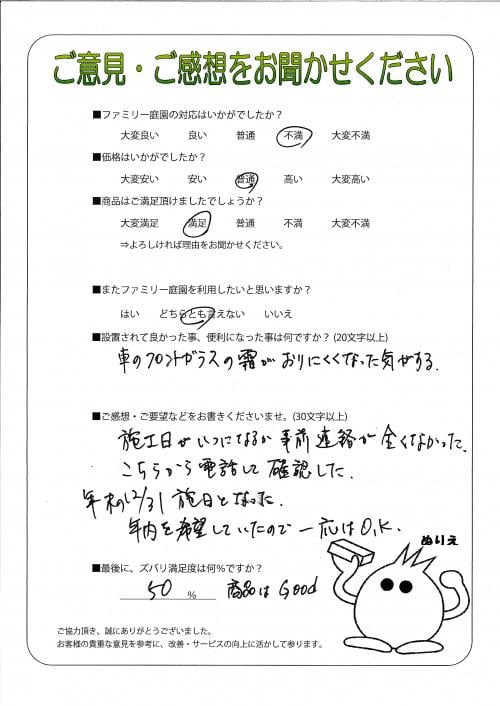 ご意見・ご感想をお聞かせください
■ファミリー庭園の対応はいかがでしたか？
大変良い 良い 普通 不満 大変不満
■価格はいかがでしたか？
大変安い 安い 普通 高い 大変高い
■商品はご満足頂けましたでしょうか？
大変満足 満足 普通 不満 大変不満
⇒よろしければ理由をお聞かせください。
■またファミリー庭園を利用したいと思いますか？
はい どちらとも言えない いいえ
■設置されて良かった事、便利になった事は何ですか？(20文字以上)
車のフロントガラスの霜がおりにくくなった気がする.
■ご感想・ご要望などをお書きくださいませ。(30文字以上)
施工日がいつになるか事前連絡が全くなかった.
こちらから電話して確認した.
年末の12/31 施日となった.
年内を希望していたので一応はO.K.
ぬりえ
■最後に、ズバリ満足度は何％ですか？
50 % 商品は Good
ご協力頂き、誠にありがとうございました。
お客様の貴重な意見を参考に、改善・サービスの向上に活かして参ります。